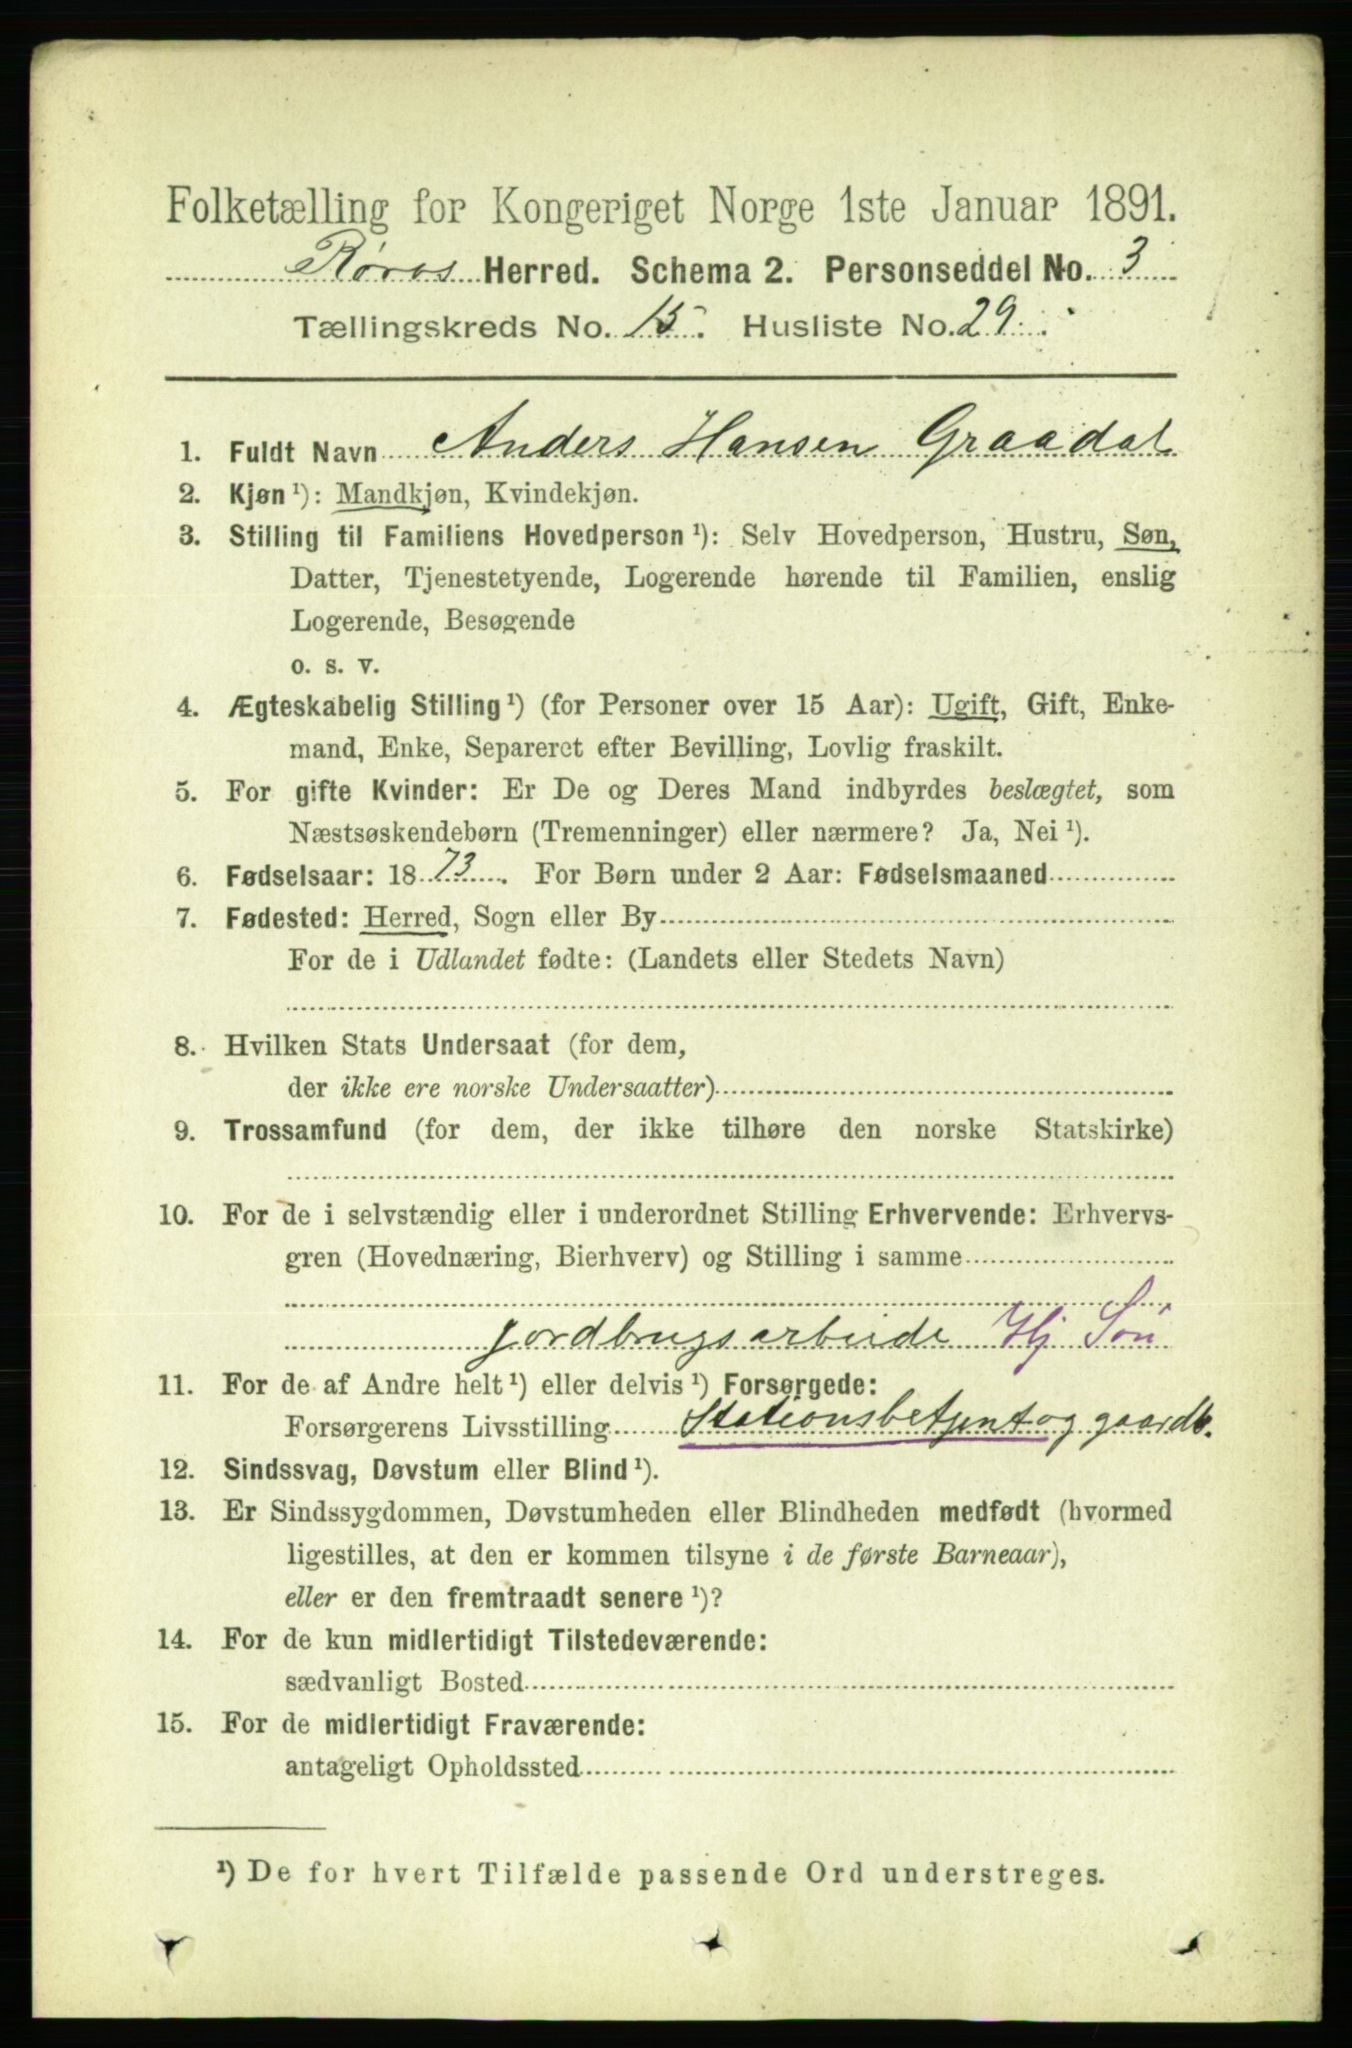 Folketælling for Kongeriget Norge 1ste Januar 1891.
Røros Herred. Schema 2. Personseddel No. 3
Tællingskreds No. 15. Husliste No. 29.
1. Fuldt Navn Anders Hansen Graadal
2. Kjøn¹): Mandkjøn, Kvindekjøn.
3. Stilling til Familiens Hovedperson¹): Selv Hovedperson, Hustru, Søn,
Datter, Tjenestetyende, Logerende hørende til Familien, enslig
Logerende, Besøgende
o. s. v.
4. Ægteskabelig Stilling¹) (for Personer over 15 Aar): Ugift, Gift, Enke-
mand, Enke, Separeret efter Bevilling, Lovlig fraskilt.
5. For gifte Kvinder: Er De og Deres Mand indbyrdes beslægtet, som
Næstsøskendebørn (Tremenninger) eller nærmere? Ja, Nei¹).
6. Fødselsaar: 1873. For Børn under 2 Aar: Fødselsmaaned
7. Fødested: Herred, Sogn eller By
For de i Udlandet fødte: (Landets eller Stedets Navn)
8. Hvilken Stats Undersaat (for dem,
der ikke ere norske Undersaatter)
9. Trossamfund (for dem, der ikke tilhøre den norske Statskirke)
10. For de i selvstændig eller i underordnet Stilling Erhvervende: Erhvervs-
gren (Hovednæring, Bierhverv) og Stilling i samme
jordbrugsarbeide Hj Søn
11. For de af Andre helt¹) eller delvis¹) Forsørgede:
Forsørgerens Livsstilling Stationsbetjent og gaardb.
12. Sindssvag, Døvstum eller Blind¹).
13. Er Sindssygdommen, Døvstumheden eller Blindheden medfødt (hvormed
ligestilles, at den er kommen tilsyne i de første Barneaar),
eller er den fremtraadt senere¹)?
14. For de kun midlertidigt Tilstedeværende:
sædvanligt Bosted
15. For de midlertidigt Fraværende:
antageligt Opholdssted
¹) De for hvert Tilfælde passende Ord understreges.